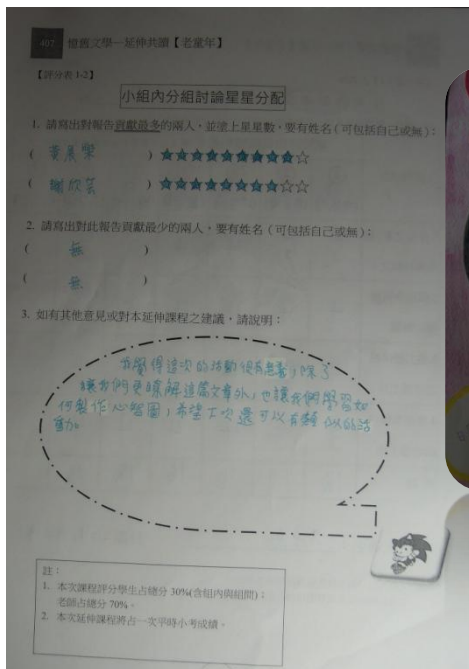 407 憶舊文學—延伸共讀【老童年】
【評分表1-2】
小組內分組討論星星分配
1. 請寫出對報告貢獻最多的兩人，並塗上星星數，要有姓名（可包括自己或無）：
( 黃晨榮 ) ★★★★★★★★★☆
( 謝欣芸 ) ★★★★★★★★☆☆
2. 請寫出對此報告貢獻最少的兩人，要有姓名（可包括自己或無）：
( 無 )
( 無 )
3. 如有其他意見或對本延伸課程之建議，請說明：
我覺得這次的活動很有意義，除了
讓我們更瞭解這篇文章外，也讓我們學習如
何製作心智圖，希望下次還可以有類似的活
動。
註：
1. 本次課程評分學生占總分 30%(含組內與組間)；
老師占總分 70%。
2. 本次延伸課程將占一次平時小考成績。